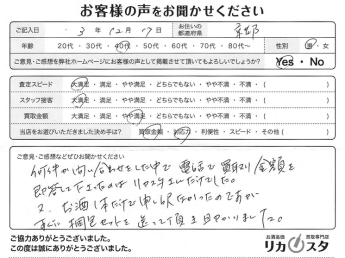 お客様の声をお聞かせください
ご記入日 3年 12月 17日 お住いの都道府県 京都
年齢 20代・30代・40代・50代・60代・70代・80代～ 性別 男・女
ご意見・ご感想を弊社ホームページにお客様の声として掲載させて頂いてもよろしいでしょうか? Yes・No
査定スピード 大満足・満足・やや満足・どちらでもない・やや不満・不満・( )
スタッフ接客 大満足・満足・やや満足・どちらでもない・やや不満・不満・( )
買取金額 大満足・満足・やや満足・どちらでもない・やや不満・不満・( )
当店をお選びいただきました決め手は? 買取金額・対応力・利便性・スピード・その他( )
ご意見・ご感想などぜひお聞かせください
何件か問い合わせをした中で電話で買取り金額を
即答して下さったのはリカスタさんだけでした。
又、お酒1本だけで申し訳なかったのですが
すぐに梱包セットを送って頂き助かりました。
ご協力ありがとうございました。
この度は誠にありがとうございました。
お酒高価買取専門店
リカスタ